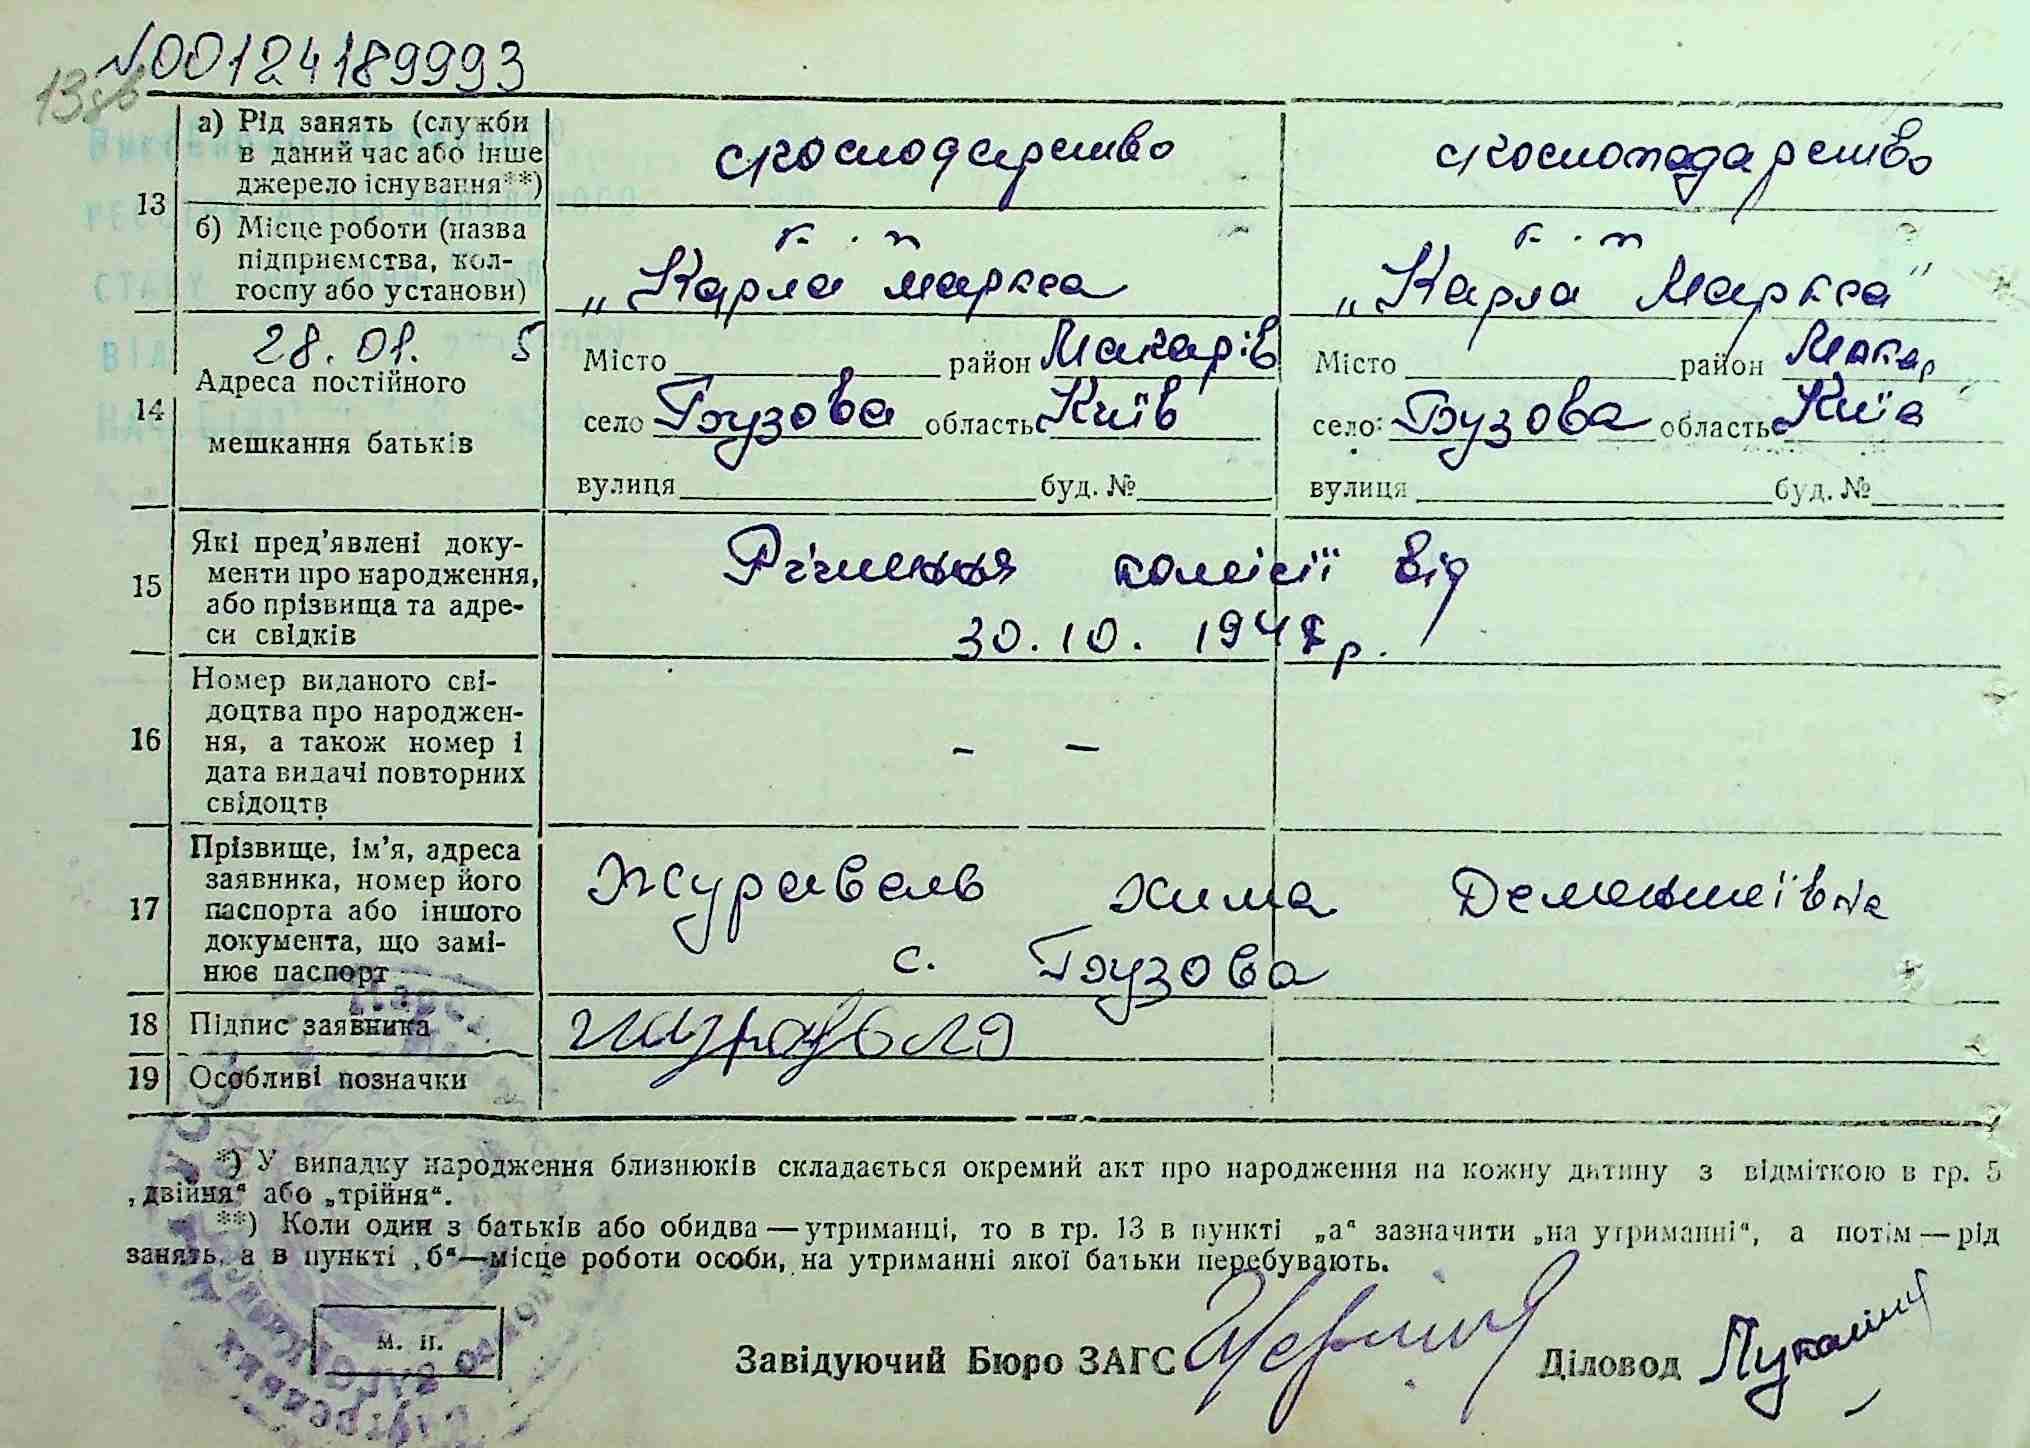 №00124189993
13зв
13
а) Рід занять (служби в даний час або інше джерело існування**)
скосподарство
скоспоподарство
б) Місце роботи (назва підприємства, колгоспу або установи)
к. п
„Карла маркса
к. п
„Карла Маркса"
14
28. 01. 5
Адреса постійного мешкання батьків
Місто район Макарів
село Бузова область Київ
вулиця буд. №
Місто район Макар
село: Бузова область Київ
вулиця буд. №
15
Які пред'явлені документи про народження, або прізвища та адреси свідків
Рішення комісії від
30. 10. 1947 р.
16
Номер виданого свідоцтва про народження, а також номер і дата видачі повторних свідоцтв
– –
17
Прізвище, ім'я, адреса заявника, номер його паспорта або іншого документа, що замінює паспорт
Журавель Хима Дементіївна
с. Бузова
18
Підпис заявника
19
Особливі позначки
*) У випадку народження близнюків складається окремий акт про народження на кожну дитину з відміткою в гр. 5
„двійня" або „трійня".
**) Коли один з батьків або обидва — утриманці, то в гр. 13 в пункті „а" зазначити „на утриманні", а потім — рід
занять, а в пункті „б"—місце роботи особи, на утриманні якої батьки перебувають.
М. П.
Завідуючий Бюро ЗАГС
Діловод